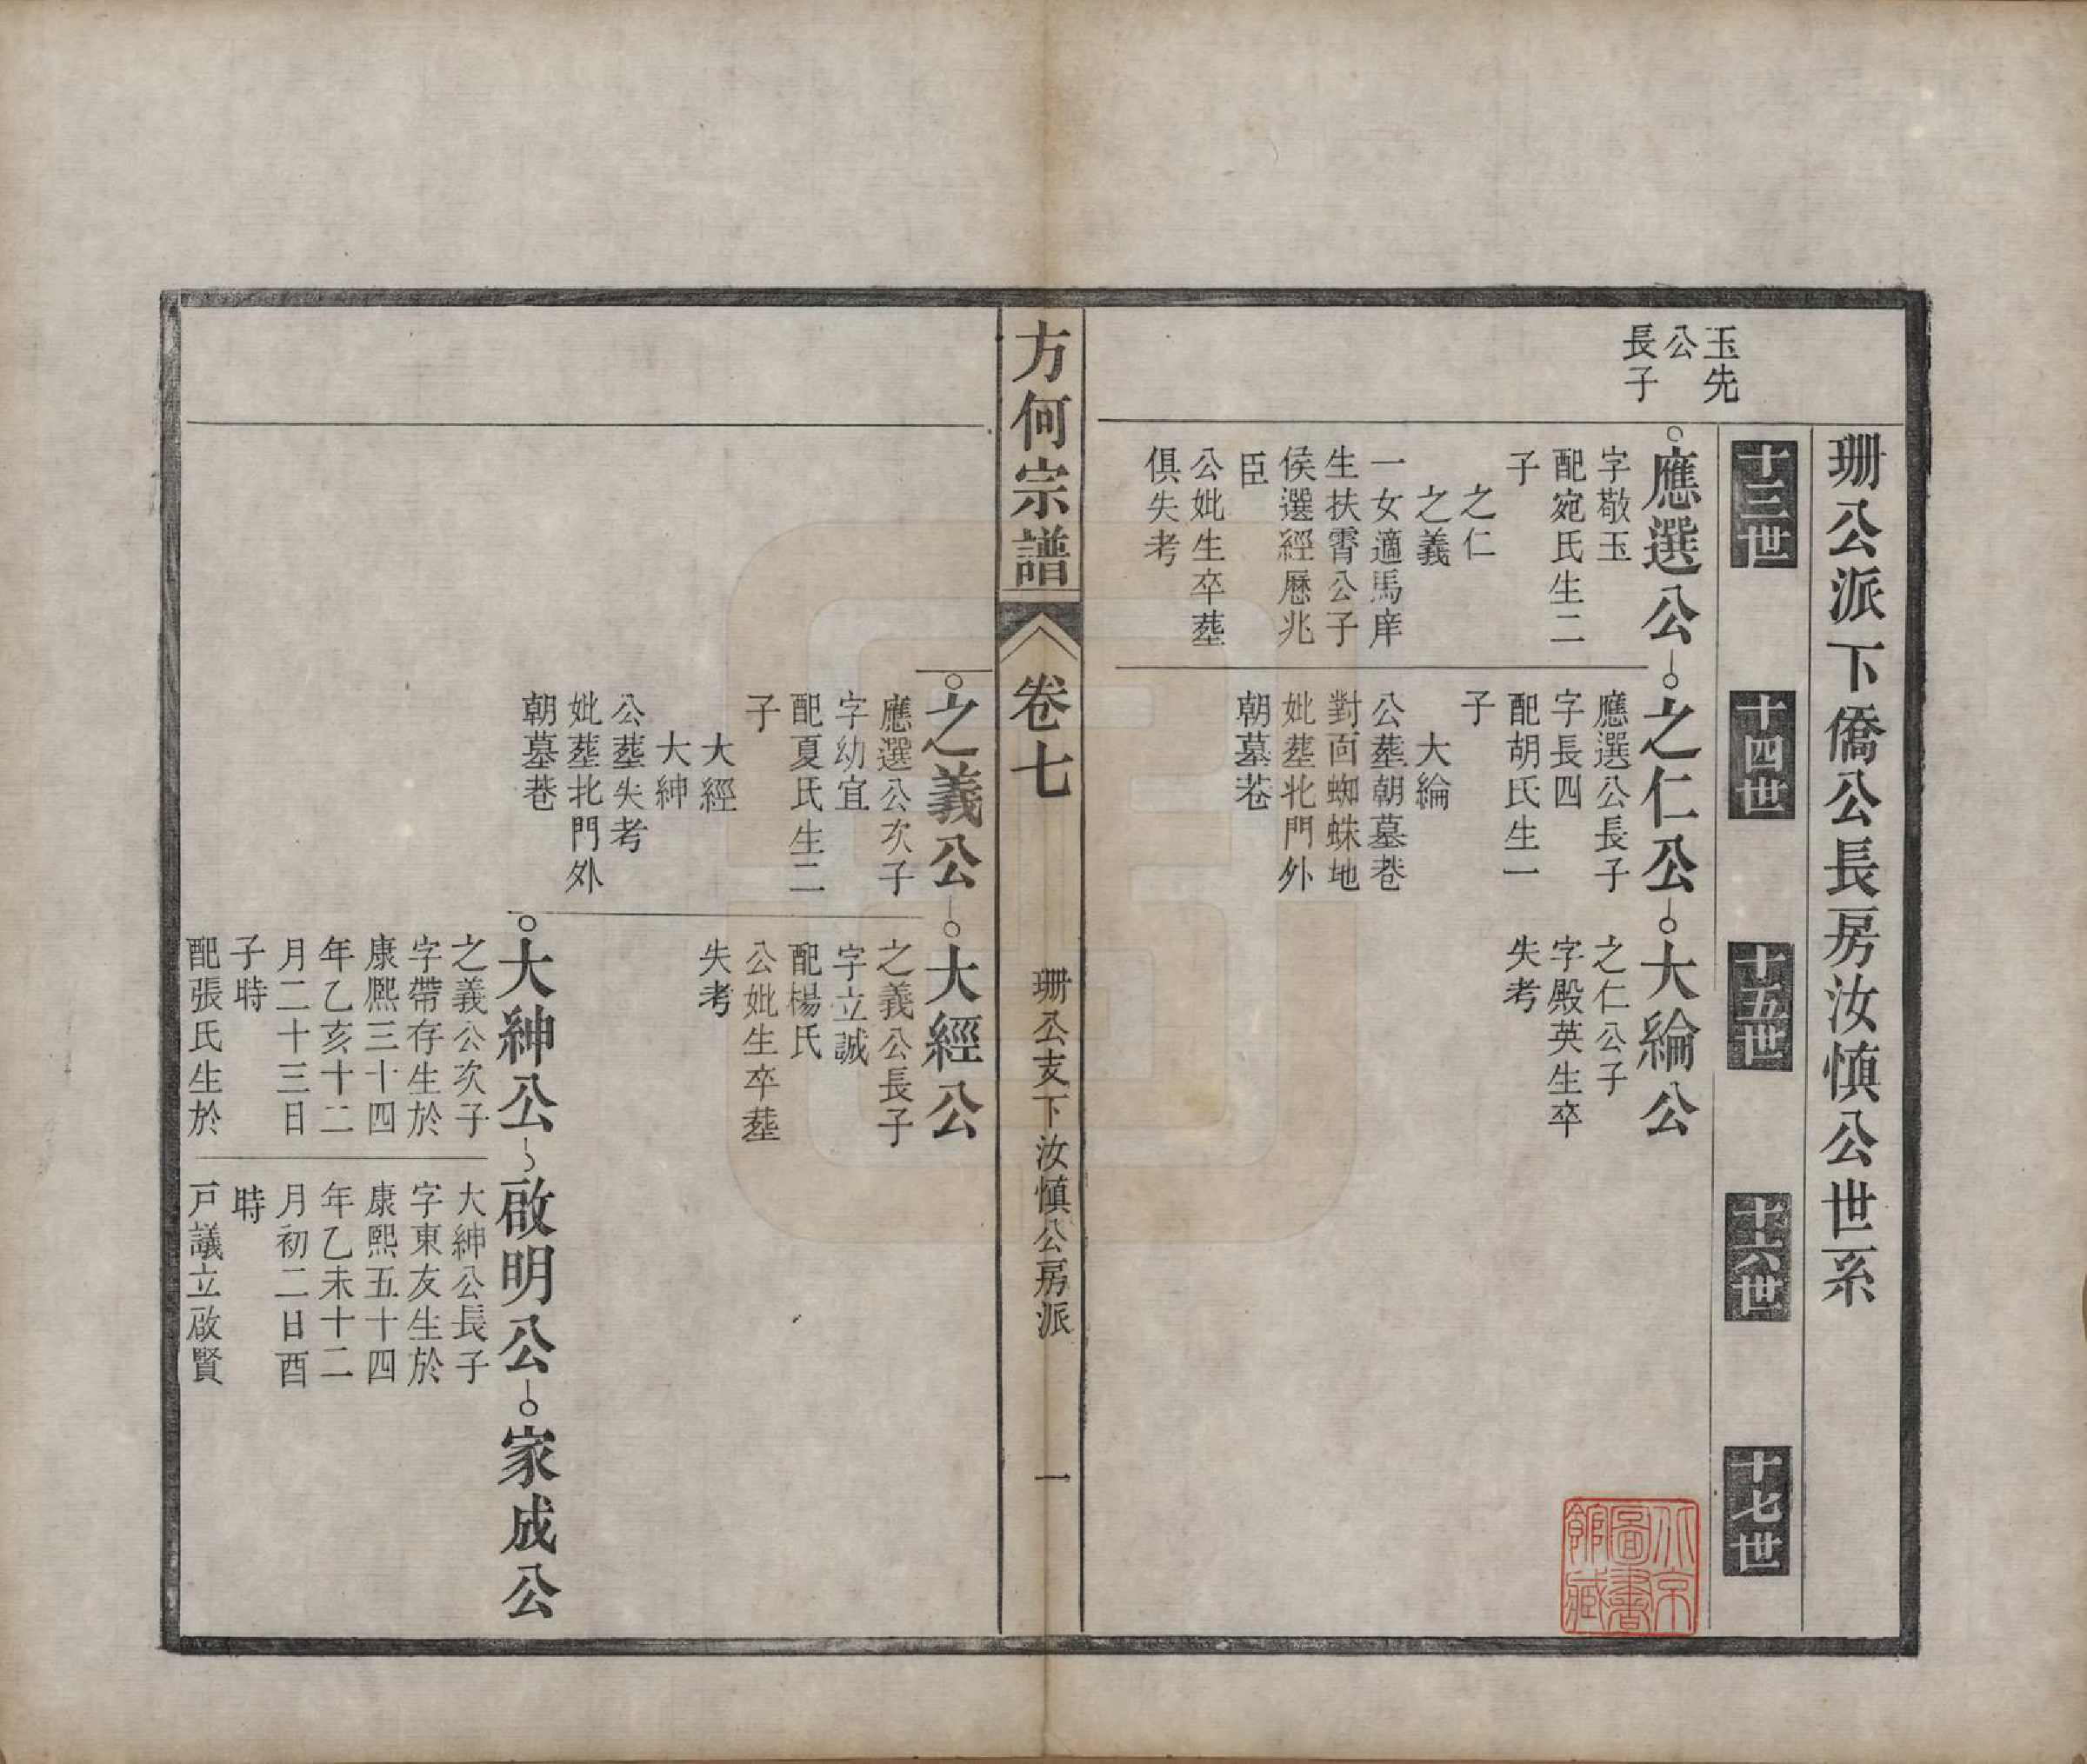 珊公派下僑公長房汝慎公世系
十三世
十四世
十五世
十六世
十七世
玉先
公
長子
應選公
字敬玉
配宛氏生二
子
之仁
之義
一女適馬庠
生扶霄公子
侯選經歷兆
臣
公妣生卒塟
俱失考
之仁公
應選公長子
字長四
配胡氏生一
子
大綸
公塟朝墓巷
對面蜘蛛地
妣塟北門外
朝墓巷
大綸公
之仁公子
字殿英生卒
失考
北京
圖書
館藏
方何宗譜
卷七
珊公支下汝慎公房派
一
之義公
應選公次子
字幼宜
配夏氏生二
子
大經
大紳
公塟失考
妣塟北門外
朝墓巷
大經公
之義公長子
字立誠
配楊氏
公妣生卒塟
失考
大紳公
之義公次子
字帶存生於
康熙三十四
年乙亥十二
月二十三日
子時
配張氏生於
啟明公
大紳公長子
字東友生於
康熙五十四
年乙未十二
月初二日酉
時
戸議立啟賢
家成公